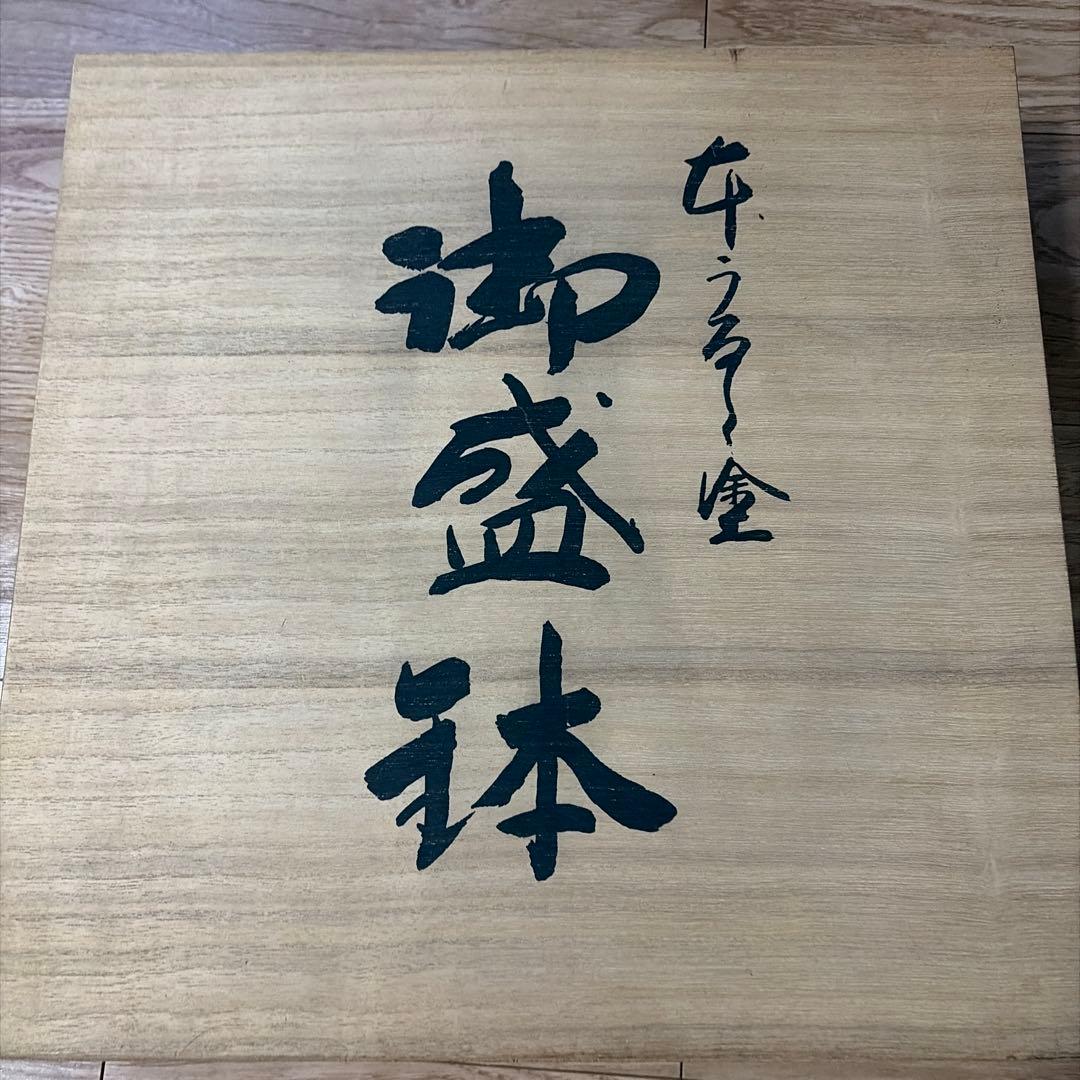 本うるし塗
御盛鉢